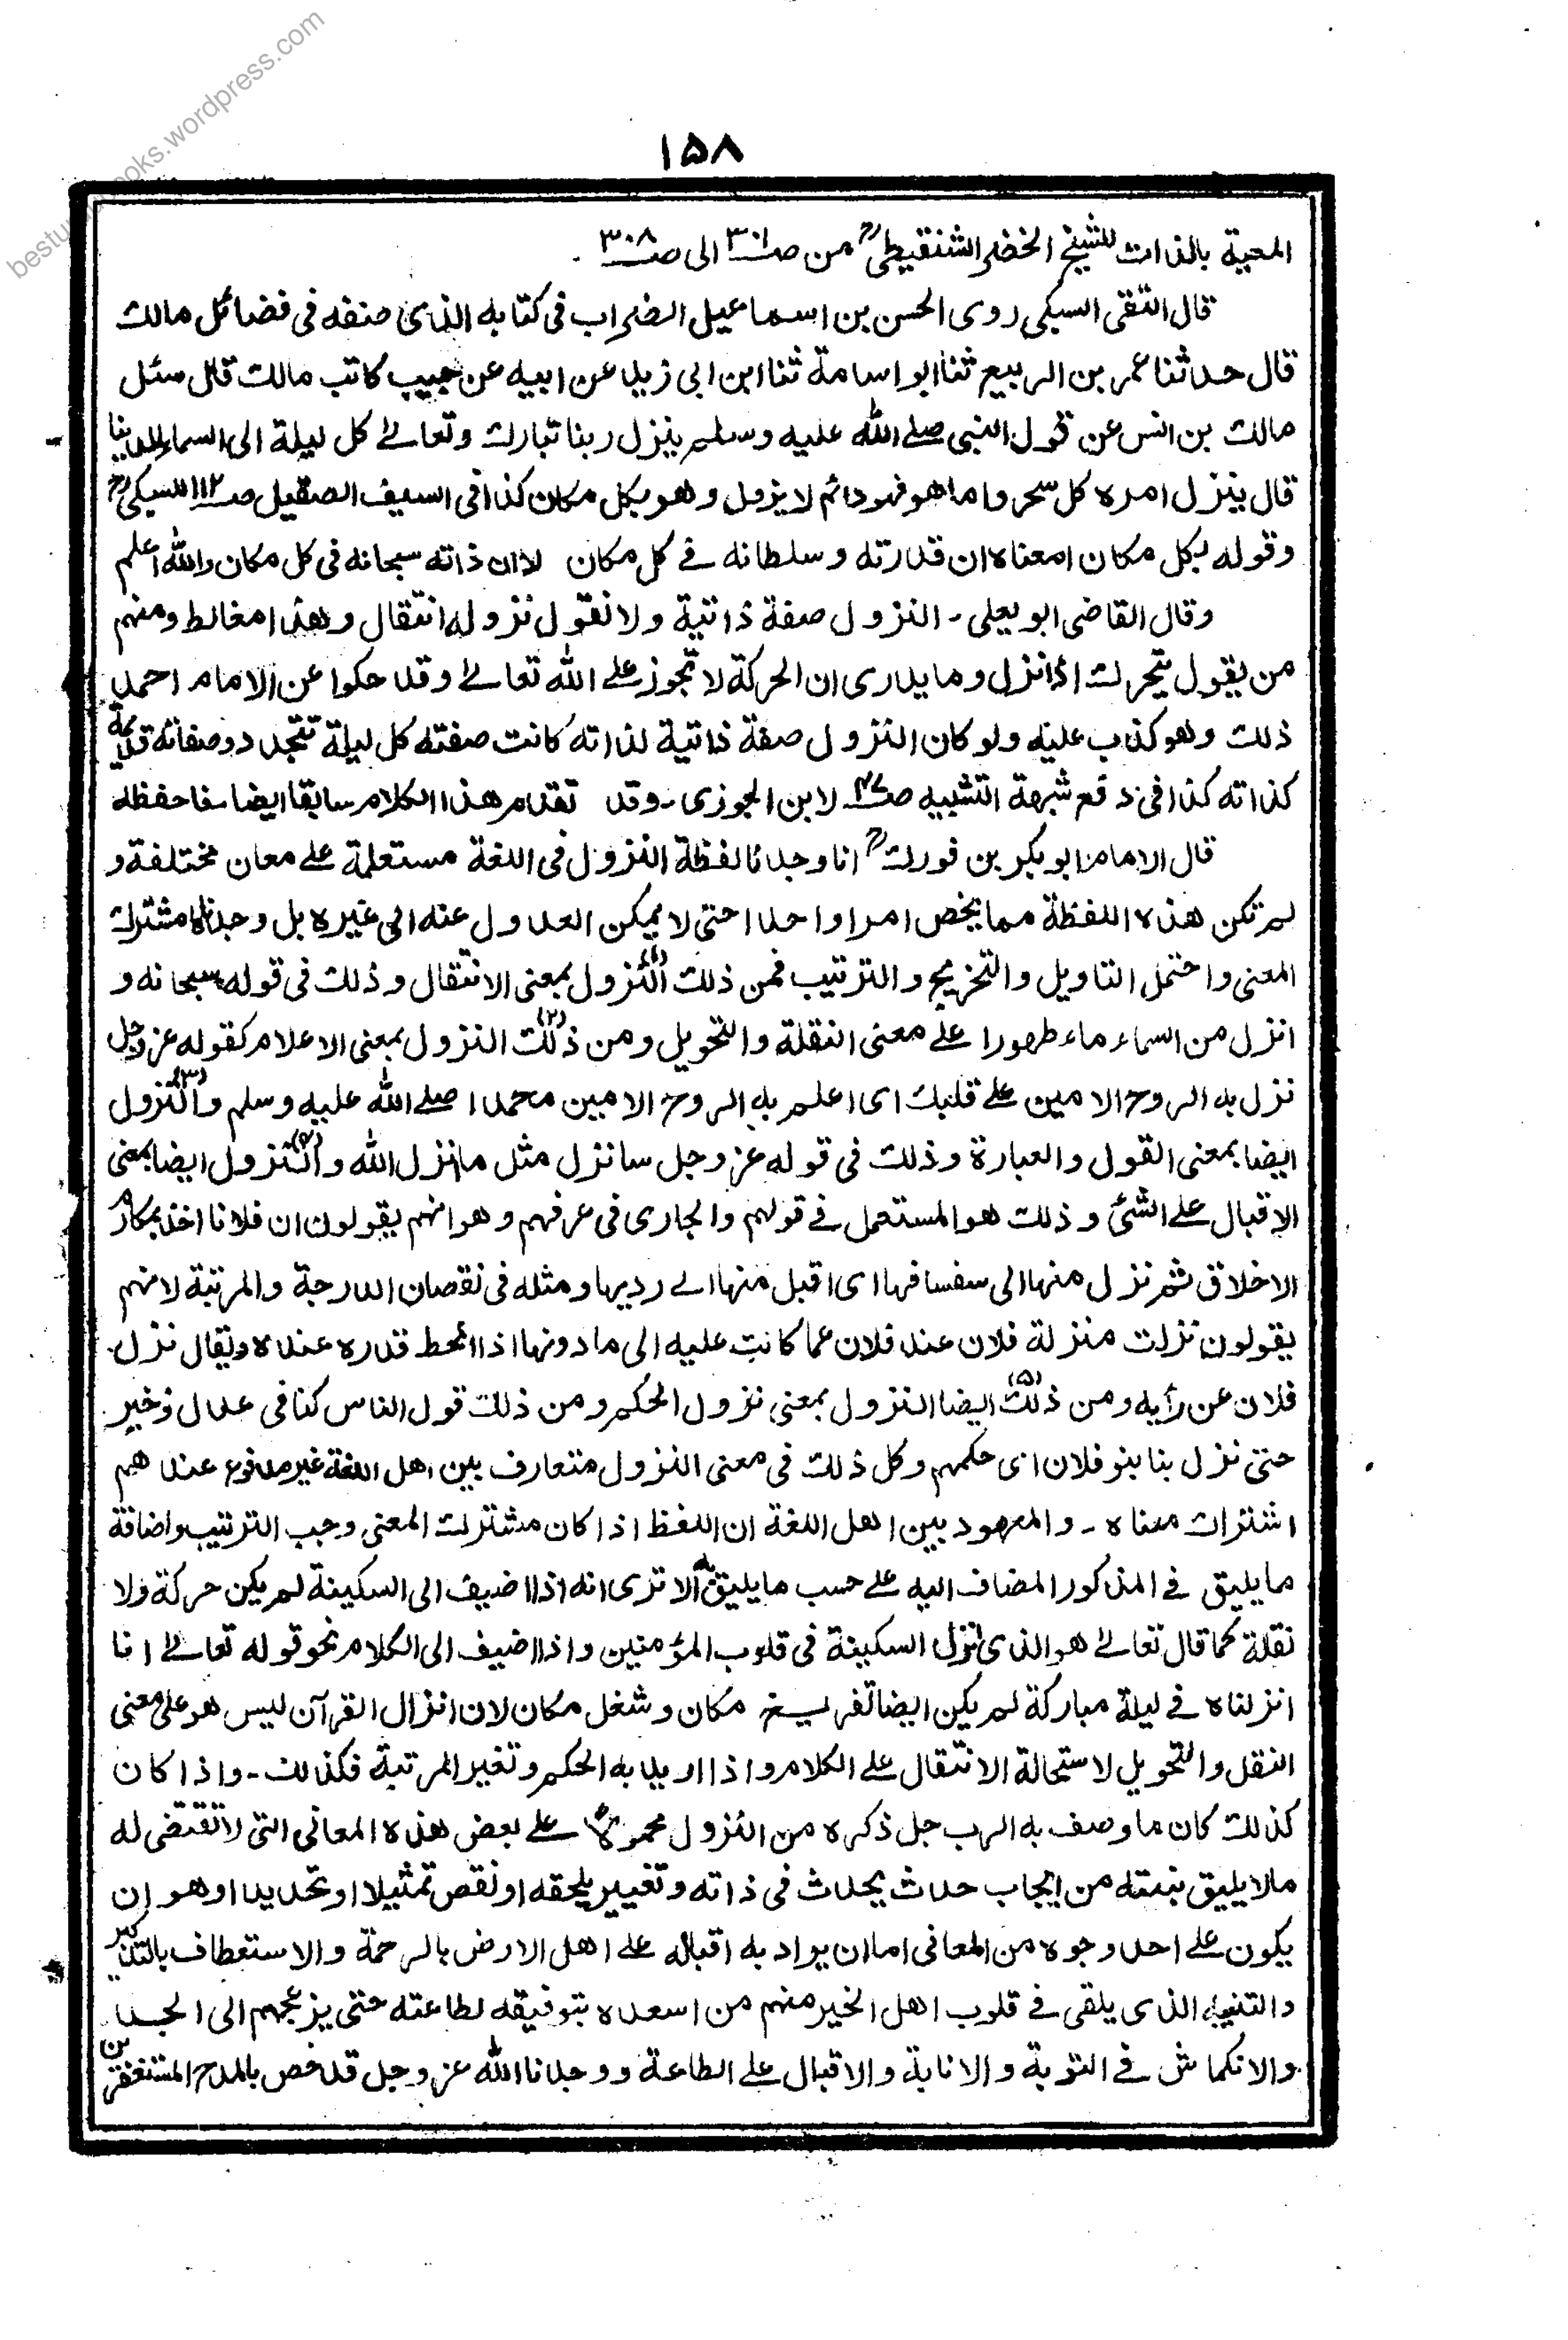 ١٥٨
المعية بالذات للشيخ الخضر الشنقيطىؒ من صـ٣٠١ الى صـ٣٠٨ .
قال التقى السبكى روى الحسن بن اسماعيل الضراب فى كتابه الذى صنفه فى فضائل مالك
قال حدثنا عمر بن الربيع ثنا ابو اسامة ثنا ابن ابى زيد عن ابيه عن حبيب كاتب مالك قال سئل
مالك بن انس عن قول النبى صلے الله عليه وسلم ينزل ربنا تبارك وتعالےٰ كل ليلة الى السماء الدنيا
قال ينزل امره كل سحر واما هو فهو دائم لا يزول وهو بكل مكان كذا فى السيف الصقيل صـ١١٢ للسبكىؒ
وقوله بكل مكان امعناه ان قدرته وسلطانه فے كل مكان لا ان ذاته سبحانه فى كل مكان والله اعلم
وقال القاضى ابو يعلى - النزول صفة ذاتية ولا نقول نزوله انتقال وهذا مغالط ومنهم
من يقول يتحرك اذا نزل وما يدرى ان الحركة لا تجوز علے الله تعالےٰ وقد حكوا عن الامام احمد
ذلك وهو كذب عليه ولو كان النزول صفة ذاتية لذاته كانت صفته كل ليلة تتجدد وصفاته قديمة
كذاته كذا فى دفع شبهة التشبيه صـ لابن الجوزى - وقد تقدم هذا الكلام سابقا ايضا فاحفظه
قال الامام ابو بكر بن فوركؒ انا وجدنا لفظة النزول فى اللغة مستعملة علے معان مختلفة و
لم تكن هذه اللفظة مما يخص امرا واحدا حتى لا يمكن العدول عنه الى غيره بل وجدناه مشترك
المعنى واحتمل التاويل والتخريج والترتيب فمن ذلك (١) النزول بمعنى الانتقال وذلك فى قوله سبحانه و
انزل من السماء ماء طهورا علے معنى النقلة والتحويل ومن ذلك (٢) النزول بمعنى الاعلام كقوله عز وجل
نزل به الروح الامين علے قلبك اى اعلم به الروح الامين محمدا صلے الله عليه وسلم (٣) والنزول
ايضا بمعنى القول والعبارة وذلك فى قوله عز وجل سانزل مثل ما انزل الله (٤) والنزول ايضا بمعنى
الاقبال علے الشئ وذلك هو المستعمل فے قولهم والجارى فى عرفهم وهو انهم يقولون ان فلانا اخذ بمكارم
الاخلاق ثم نزل منها الى سفسافها اى اقبل منها الے رديها ومثله فى نقصان الدرجة والمرتبة لانهم
يقولون نزلت منزلة فلان عند فلان عما كانت عليه الى ما دونها اذا انحط قدره عنده ويقال نزل
فلان عن رأيه ومن ذلك (٥) ايضا النزول بمعنى نزول الحكم ومن ذلك قول الناس كنا فى عدل وخير
حتى نزل بنا بنو فلان اى حكمهم وكل ذلك فى معنى النزول متعارف بين اهل اللغة غير مدفوع عندهم
اشتراك معناه - والمعهود بين اهل اللغة ان اللفظ اذا كان مشترك المعنى وجب الترتيب واضافة
ما يليق فے المذكور المضاف اليه علے حسب ما يليق به الا ترى انه اذا اضيف الى السكينة لم يكن حركة ولا
نقلة كما قال تعالےٰ هو الذى انزل السكينة فى قلوب المؤمنين واذا اضيف الى الكلام نحو قوله تعالےٰ انا
انزلناه فے ليلة مباركة لم يكن ايضا تفريغ مكان وشغل مكان لان انزال القرآن ليس هو على معنى
النقل والتحويل لاستحالة الانتقال علے الكلام واذا اريد به الحكم وتغير المرتبة فكذلك - واذا كان
كذلك كان ما وصف به الرب جل ذكره من النزول محمولا علے بعض هذه المعانى التى لا تقتضى له
مالا يليق بنعته من ايجاب حدث يحدث فى ذاته وتغيير يلحقه او نقص تمثيلا او تحديدا وهو ان
يكون علے احد وجوه من المعانى اما ان يراد به اقباله علے اهل الارض بالرحمة والاستعطاف بالتذكير
والتنبيه الذى يلقى فے قلوب اهل الخير منهم من اسعده بتوفيقه لطاعته حتى يزعجهم الى الجد
والانكماش فے التوبة والانابة والاقبال علے الطاعة ووجدنا الله عز وجل قد خص بالمدح المستغفرين
bestu ooks.wordpress.com